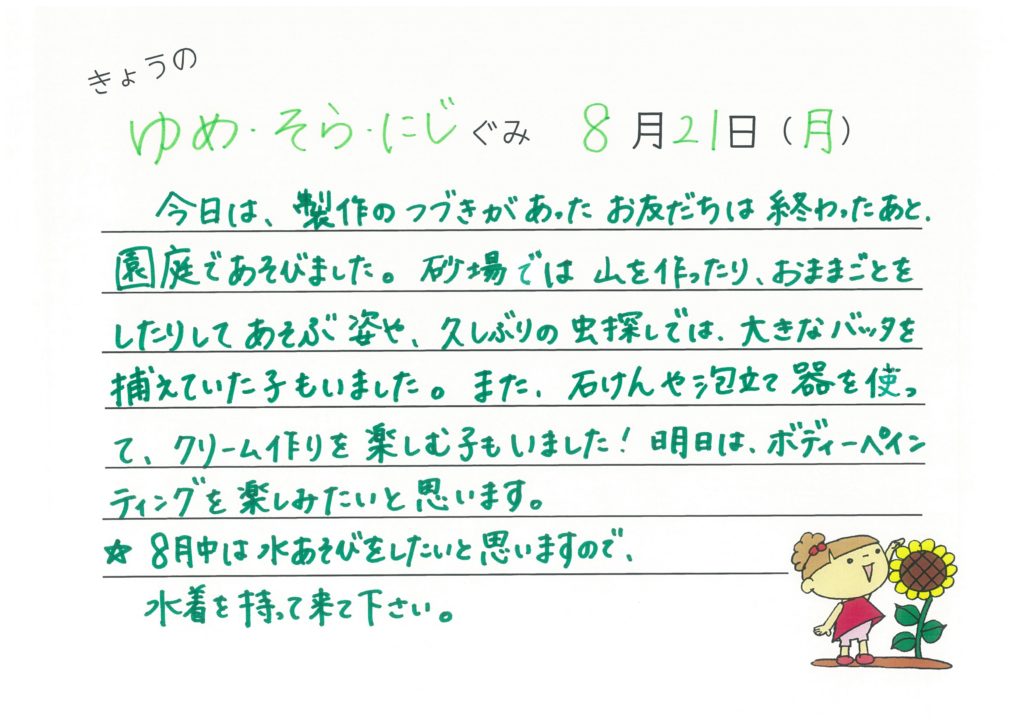 きょうの
ゆめ・そら・にじぐみ 8月21日(月)
今日は、製作のつづきがあったお友だちは終わったあと、
園庭であそびました。砂場では山を作ったり、おままごとを
したりしてあそぶ姿や、久しぶりの虫探しでは、大きなバッタを
捕えていた子もいました。また、石けんや泡立て器を使っ
て、クリーム作りを楽しむ子もいました!明日は、ボディーペイン
ティングを楽しみたいと思います。
☆ 8月中は水あそびをしたいと思いますので、
水着を持って来て下さい。